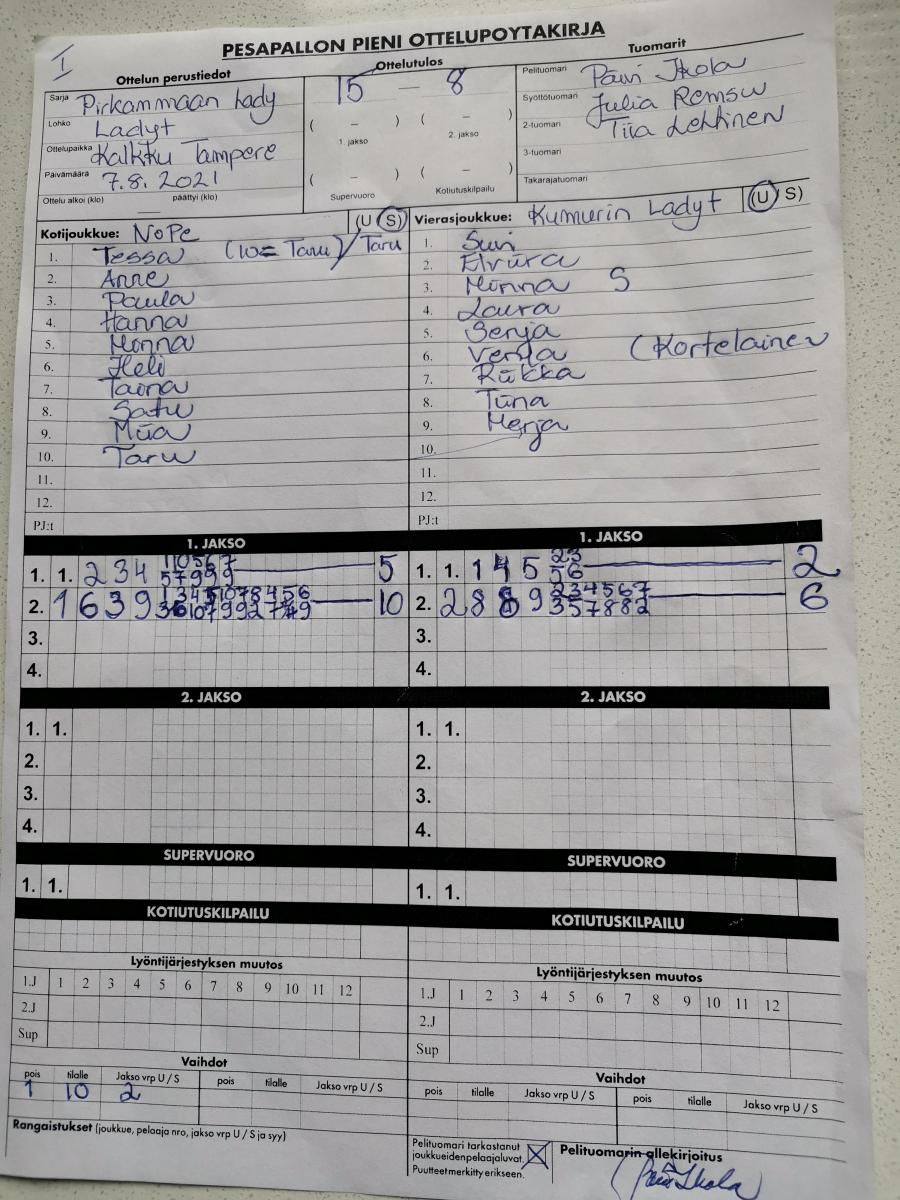 I
PESAPALLON PIENI OTTELUPOYTAKIRJA
Ottelun perustiedot
Ottelutulos
Tuomarit
Sarja Pirkanmaan Lady
Lohko Ladyt
Ottelupaikka Kalkku Tampere
Päivämäärä 7.8.2021
Ottelu alkoi (klo) — päättyi (klo)
15 — 8
( – ) ( – )
1. jakso 2. jakso
( – ) ( – )
Supervuoro Kotiutuskilpailu
Pelituomari Päivi Ikola
Syöttötuomari Julia Remsu
2-tuomari Tiia Lehtinen
3-tuomari
Takarajatuomari
Kotijoukkue: NoPe (U S)
1. Tessa (10= Taru) / Taru
2. Anne
3. Paula
4. Hanna
5. Minna
6. Heli
7. Taina
8. Satu
9. Miia
10. Taru
11.
12.
PJ:t
Vierasjoukkue: Kumurin Ladyt (U S)
1. Suvi
2. Elviira
3. Minna S
4. Laura
5. Senja
6. Venla (Kortelainen
7. Riikka
8. Tiina
9. Merja
10.
11.
12.
PJ:t
1. JAKSO
1. 1. 2 3 4 5
2. 1 6 3 9 10
3.
4.
1. JAKSO
1. 1. 1 4 5 23 56 2
2. 2 8 8 9 234567 357882 6
3.
4.
2. JAKSO
1. 1.
2.
3.
4.
2. JAKSO
1. 1.
2.
3.
4.
SUPERVUORO
1. 1.
SUPERVUORO
1. 1.
KOTIUTUSKILPAILU
KOTIUTUSKILPAILU
Lyöntijärjestyksen muutos
1.J 1 2 3 4 5 6 7 8 9 10 11 12
2.J
Sup
Lyöntijärjestyksen muutos
1.J 1 2 3 4 5 6 7 8 9 10 11 12
2.J
Sup
Vaihdot
pois tilalle Jakso vrp U / S pois tilalle Jakso vrp U / S
1 10 2
Vaihdot
pois tilalle Jakso vrp U / S pois tilalle Jakso vrp U / S
Rangaistukset (joukkue, pelaaja nro, jakso vrp U / S ja syy)
Pelituomari tarkastanut
joukkueiden pelaajaluvat. X
Puutteet merkitty erikseen.
Pelituomarin allekirjoitus
Päivi Ikola